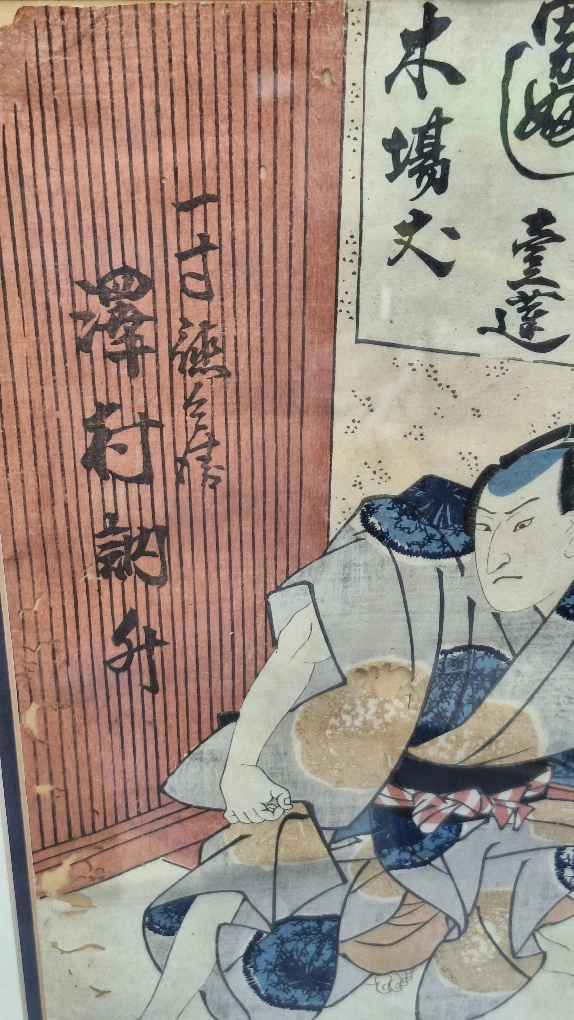 壹蓮
木場丈
一寸徳兵衛
澤村訥升